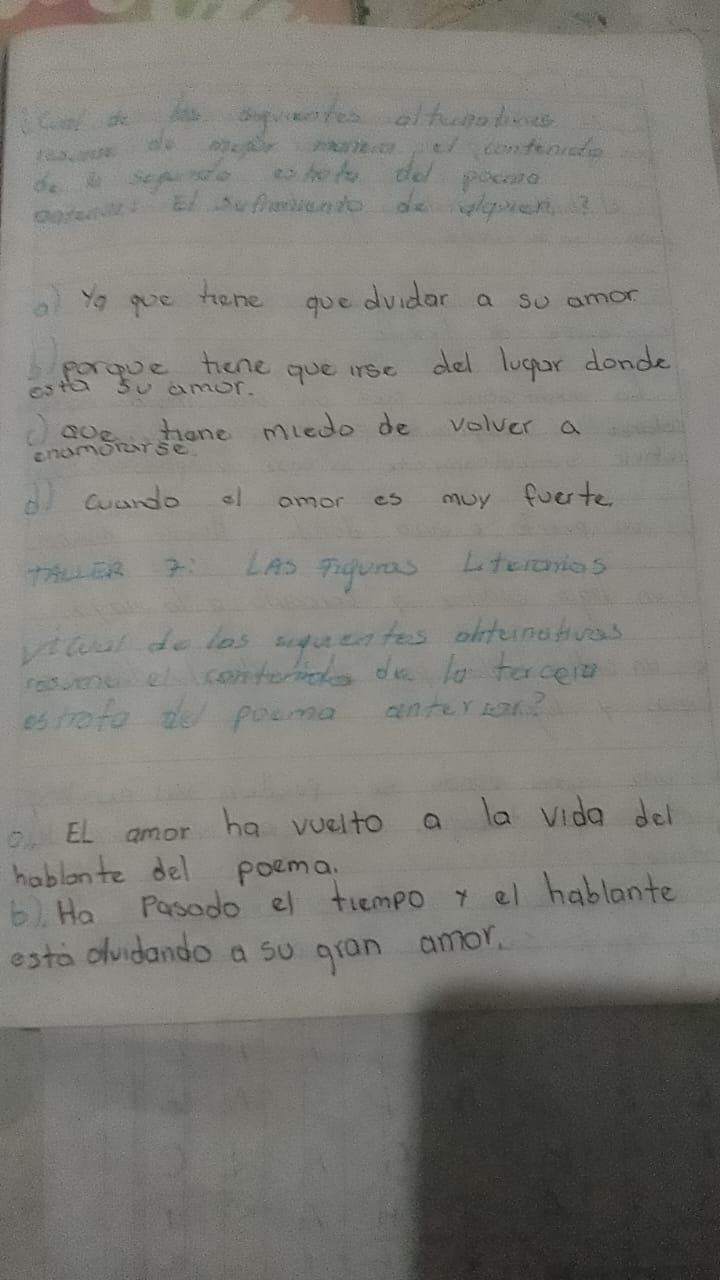 ¿Cual de las siguientes alternativas
resume de mejor manera el contenido
de la segunda estrofa del poema
anterior: El sufrimiento de alguien?
a) Ya que tiene que olvidar a su amor
b) porque tiene que irse del lugar donde
está su amor.
c) que tiene miedo de volver a
enamorarse.
d) cuando el amor es muy fuerte.
TALLER 7: LAS Figuras Literarias
¿Cual de los siguentes alternativas
resume el contenido de la tercera
estrofa del poema anterior?
a). EL amor ha vuelto a la vida del
hablante del poema.
b). Ha Pasado el tiempo y el hablante
está olvidando a su gran amor.